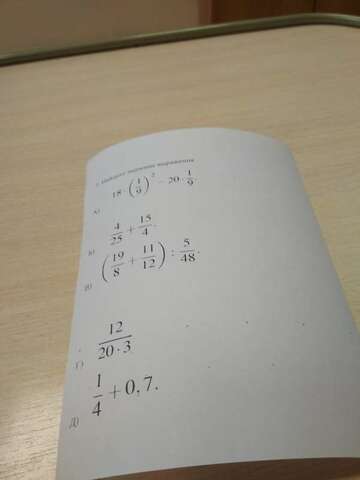 Найдите значение выражения
а) 18·(1/9)² − 20·1/9.
б) 4/25 + 15/4.
в) (19/8 + 11/12) : 5/48.
г) 12/(20·3)
д) 1/4 + 0,7.